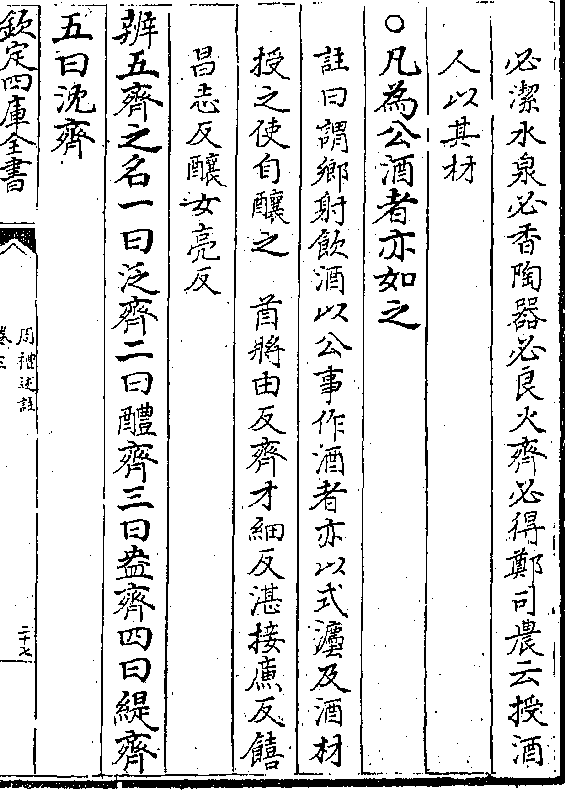 必潔水泉必香陶器必良火齊必得鄭司農云授酒
人以其材
○凡為公酒者亦如之
註曰謂鄉射飲酒以公事作酒者亦以式灋及酒材
授之使自釀之　酋將由反齊才細反湛接廉反饎
昌志反釀女亮反
辨五齊之名一曰泛齊二曰醴齊三曰盎齊四曰緹齊
五曰沈齊
欽定四庫全書
周禮述註
卷三
二十七